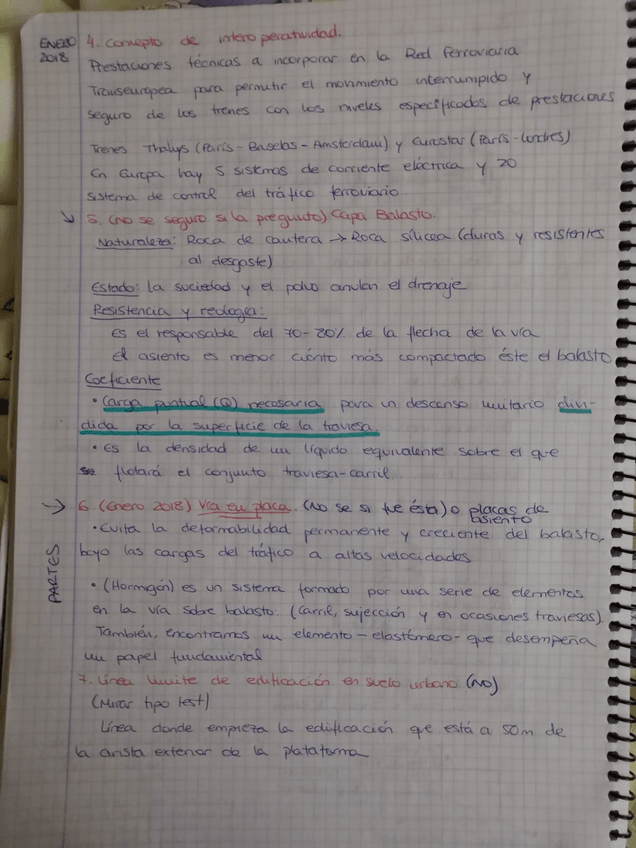 ENERO 2018
4. Concepto de interoperatividad.
Prestaciones técnicas a incorporar en la Red Ferroviaria
Transeuropea para permitir el movimiento interrumpido y
seguro de los trenes con los niveles especificados de prestaciones
Trenes Thalys (París - Bruselas - Amsterdam) y Eurostar (París - Londres)
En Europa hay 5 sistemas de corriente eléctrica y 20
sistema de control del tráfico ferroviario.
5. (no se seguro si la pregunto) Capa Balasto.
Naturaleza: Roca de cantera → Roca silicea (duras y resistentes
al desgaste)
Estado: la suciedad y el polvo anulan el drenaje
Resistencia y reología:
Es el responsable del 70-80% de la flecha de la vía
el asiento es menor cuánto más compactado éste el balasto
Coeficiente
• Carga puntual (Q) necesaria para un descenso unitario divi-
dida por la superficie de la traviesa.
• Es la densidad de un líquido equivalente sobre el que
flotará el conjunto traviesa-carril
→ 6. (Enero 2018) Vía en placa. (No se si fue ésta) o placas de
asiento
• Evita la deformabilidad permanente y creciente del balasto,
bajo las cargas del tráfico a altas velocidades
PARTES
• (Hormigón) es un sistema formado por una serie de elementos
en la vía sobre balasto. (carril, sujección y en ocasiones traviesas)
También, encontramos un elemento - elastómero - que desempeña
un papel fundamental
7. Línea límite de edificación en suelo urbano (NO)
(Mirar tipo test)
Línea donde empieza la edificación que está a 50m de
la arista exterior de la plataforma